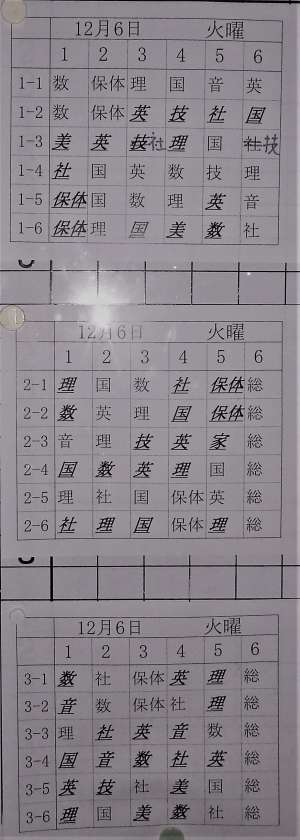 12月6日 火曜
1 2 3 4 5 6
1-1 数 保体 理 国 音 英
1-2 数 保体 英 技 社 国
1-3 美 英 技 社 理 国 社 技
1-4 社 国 英 数 技 理
1-5 保体 国 数 理 英 音
1-6 保体 理 国 美 数 社
12月6日 火曜
1 2 3 4 5 6
2-1 理 国 数 社 保体 総
2-2 数 英 理 国 保体 総
2-3 音 理 技 英 家 総
2-4 国 数 英 理 国 総
2-5 理 社 国 保体 英 総
2-6 社 理 国 保体 理 総
12月6日 火曜
1 2 3 4 5 6
3-1 数 社 保体 英 理 総
3-2 音 数 保体 社 理 総
3-3 理 社 英 音 数 総
3-4 国 音 数 社 英 総
3-5 英 技 社 美 国 総
3-6 理 国 美 数 社 総